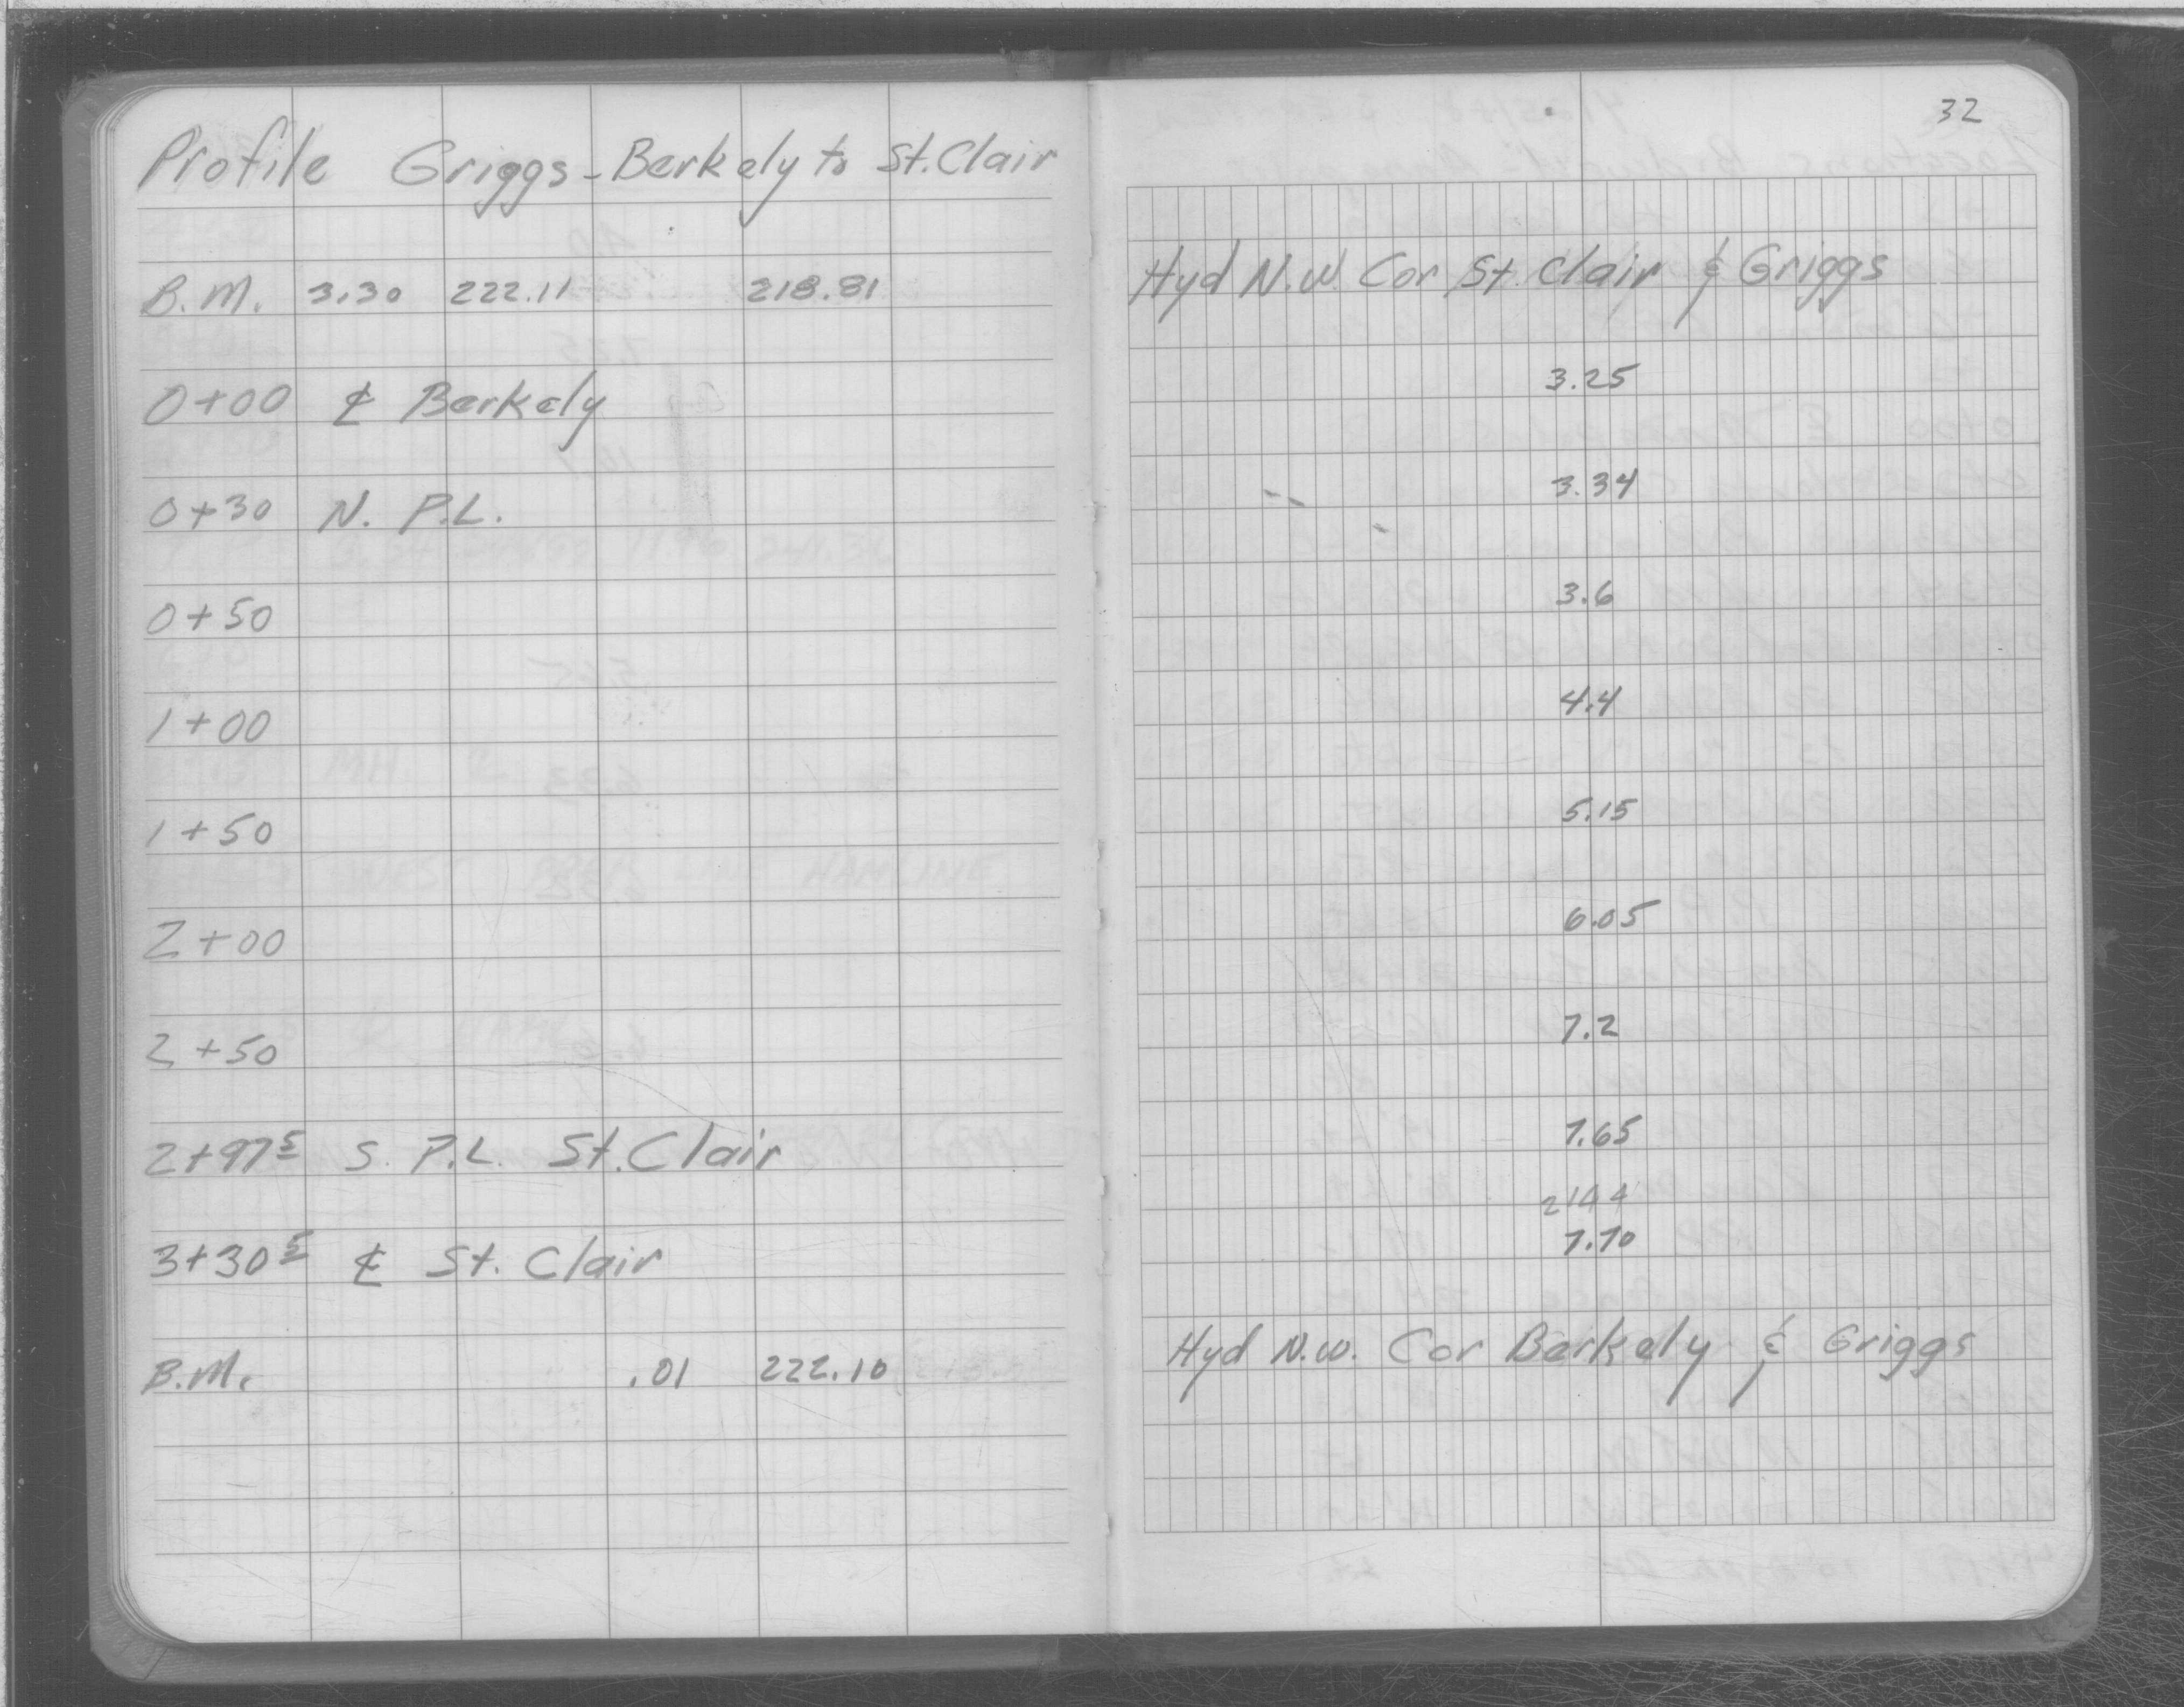 32
Profile Griggs - Berkely to St. Clair
B.M. 3.30 222.11 218.81 Hyd N.W. Cor St. Clair & Griggs
0+00 ⅊ Berkely 3.25
0+30 N. P.L. 3.34
0+50 3.6
1+00 4.4
1+50 5.15
2+00 6.05
2+50 7.2
2+97⁵ S. P.L. St. Clair 7.65
214.4
3+30⁵ ⅊ St. Clair 7.70
B.M. .01 222.10 Hyd N.W. Cor Berkely & Griggs